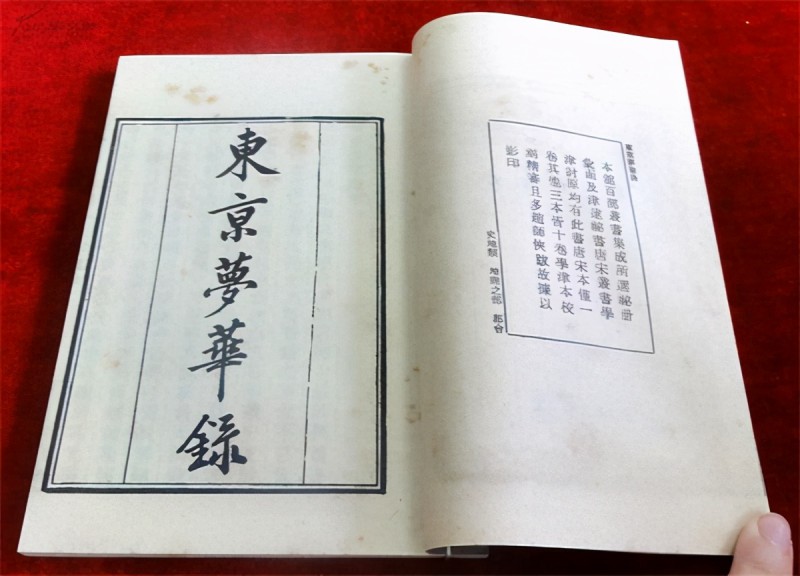 東京夢華錄
本館百部叢書集成所選祕冊
彙函及津逮祕書唐宋叢書學
津討原均有此書唐宋本僅一
卷其他三本皆十卷學津本校
刻精審且多趙師俠跋故據以
影印
史地類 地理之部 都會
東京夢華錄